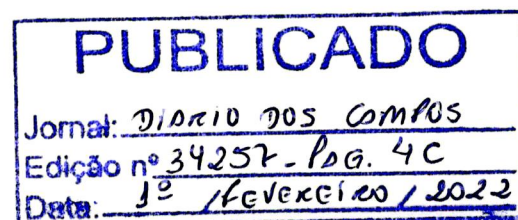 PUBLICADO
Jornal: DIARIO DOS CAMPOS
Edição nº 34257 - PAG. 4C
Data: 1º / FEVEREIRO / 2022